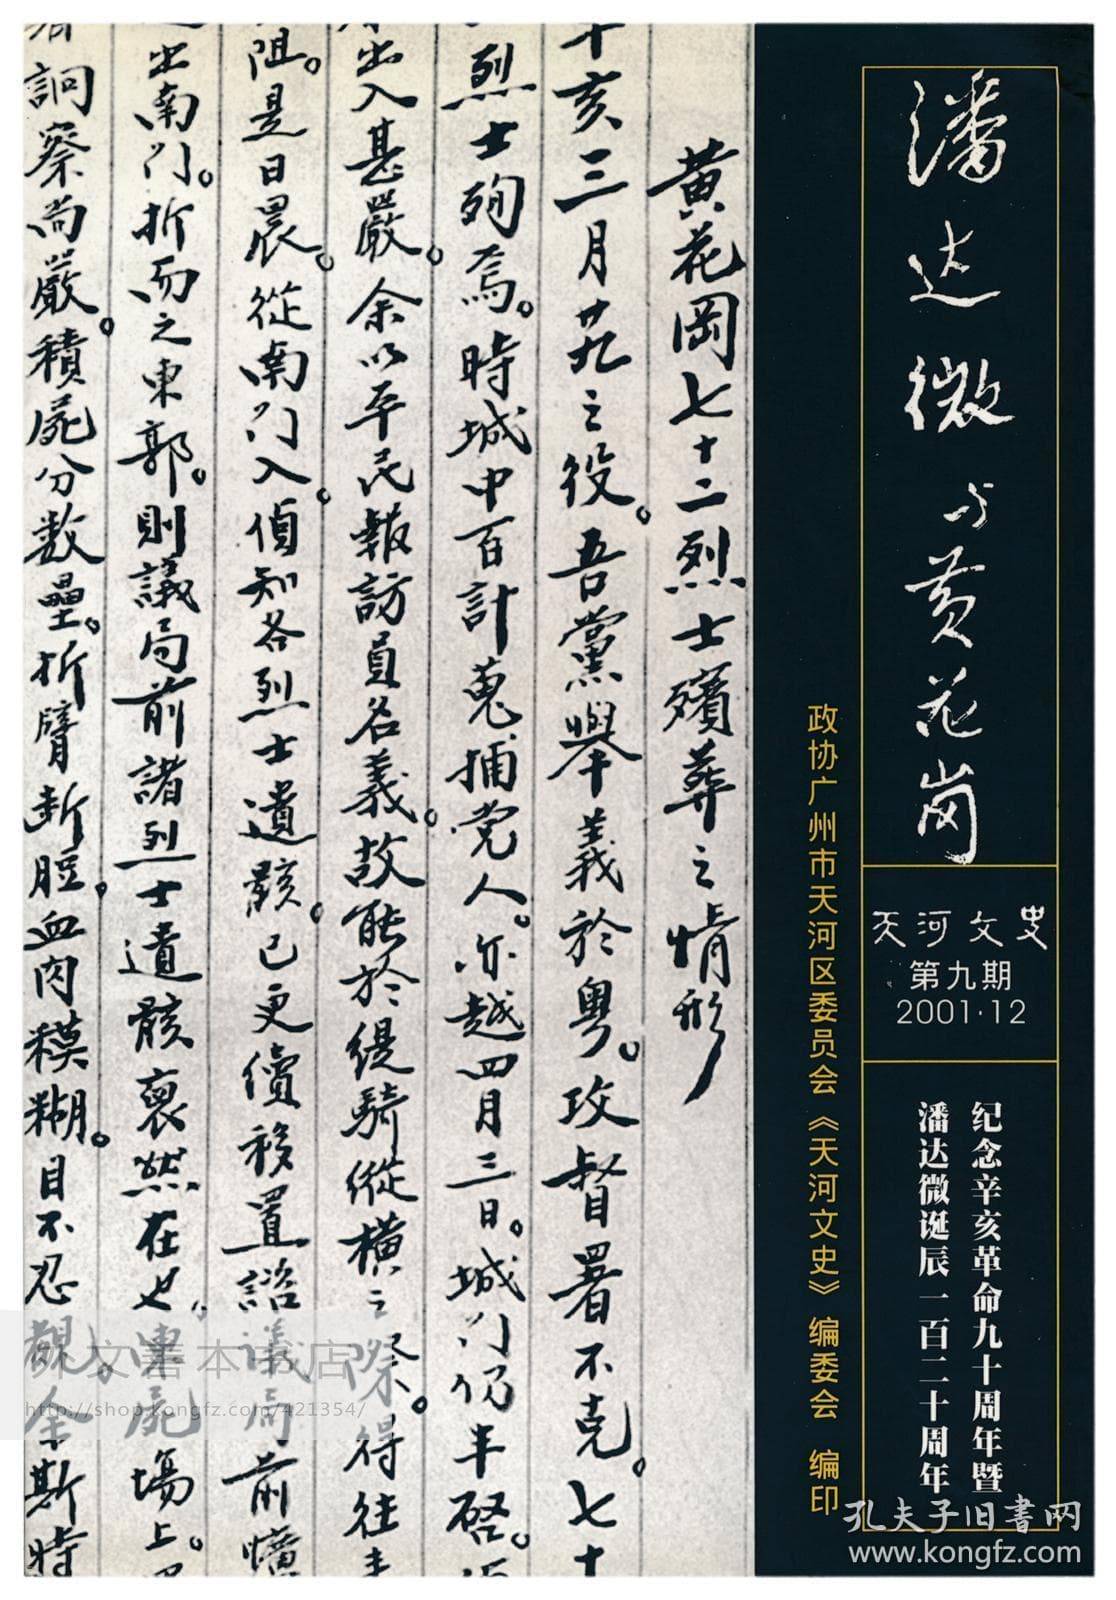 潘达微与黄花岗
天河文史
第九期
2001·12
纪念辛亥革命九十周年暨
潘达微诞辰一百二十周年
政协广州市天河区委员会《天河文史》编委会 编印
黃花岡七十二烈士殯葬之情形
亥三月廿九之役。吾黨舉義於粵。攻督署不克。七十
烈士殉焉。時城中百計蒐捕党人。亦越四月三日。城门仍半啓。
出入甚嚴。余以平民報訪員名義。故能於緹騎縱橫之際。得往
阻。是日晨。從南门入。偵知各烈士遺骸。已更續移置諮議局前
出南门。折而之東郭。則議局前諸烈士遺骸裒然在也。陳屍場上。
詗察尚嚴。積屍分数壘。折臂斷脰。血肉模糊。目不忍覩。余斯時
文善本書店
http://shop.kongfz.com/421354/
孔夫子旧书网
www.kongfz.com